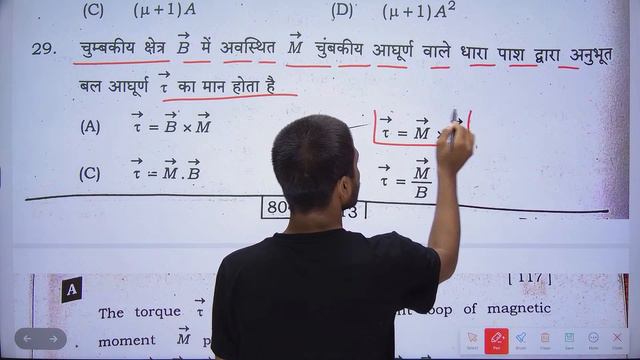 (C) (μ+1)A (D) (μ+1)A²
29. चुम्बकीय क्षेत्र B⃗ में अवस्थित M⃗ चुंबकीय आघूर्ण वाले धारा पाश द्वारा अनुभूत
बल आघूर्ण τ⃗ का मान होता है
(A) τ⃗ = B⃗ × M⃗ τ⃗ = M⃗ ×
(C) τ⃗ = M⃗ . B⃗ τ⃗ = M⃗/B
[ 117 ]
A
The torque τ⃗ loop of magnetic
moment M⃗
Select Pen Brush Eraser Clear Undo More Close